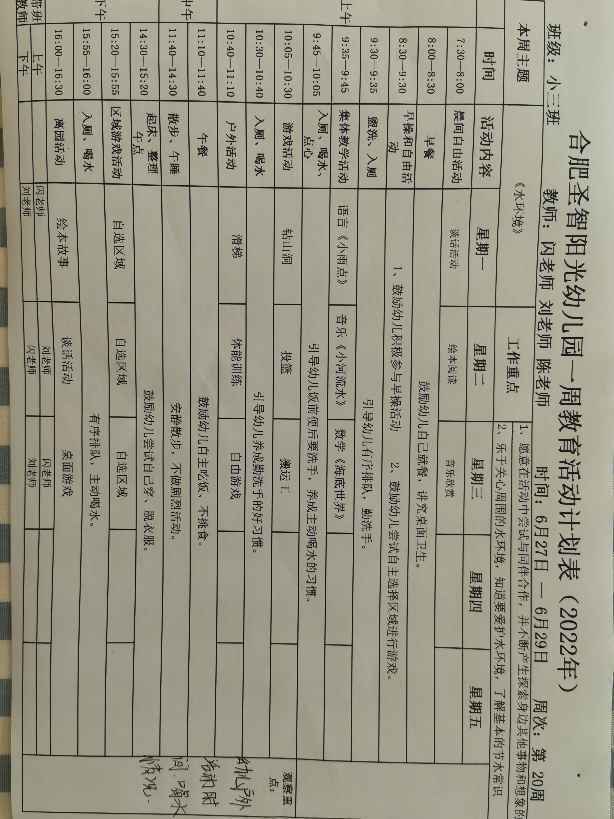 合肥圣智阳光幼儿园一周教育活动计划表（2022年）
班级：小三班 教师：闪老师 刘老师 陈老师 时间：6月27日 — 6月29日 周次：第 20周
本周主题 《水环境》 工作重点
1、愿意在活动中尝试与同伴合作，并不断产生探索身边其他事物和想象的
2、乐于关心周围的水环境，知道要爱护水环境，了解基本的节水常识
时间 活动内容 星期一 星期二 星期三 星期四 星期五
7:30—8:00 晨间自由活动 谈话活动 绘本阅读 音乐欣赏
8:00—8:30 早餐 鼓励幼儿自己就餐，讲究桌面卫生。
8:30—9:30 早操和自由活动 1、鼓励幼儿积极参与早操活动 2、鼓励幼儿尝试自主选择区域进行游戏。
9:30—9:35 盥洗、入厕 引导幼儿有序排队，勤洗手。
上午
9:35—9:45 集体教学活动 语言《小雨点》 音乐《小河流水》 数学《海底世界》
9:45—10:05 入厕、喝水、点心 引导幼儿饭前便后要洗手，养成主动喝水的习惯。
10:05—10:30 游戏活动 钻山洞 投篮 搬运工
观察重点：
10:30—10:40 入厕、喝水 引导幼儿养成勤洗手的好习惯。
10:40—11:10 户外活动 滑梯 体能训练 自由游戏
中午
11:10—11:40 午餐 鼓励幼儿自主吃饭、不挑食。
11:40—14:30 散步、午睡 安静散步，不做剧烈活动。
14:30—15:20 起床、整理午点 鼓励幼儿尝试自己穿、脱衣服。
下午
15:20—15:55 区域游戏活动 自选区域 自选区域 自选区域
15:55—16:00 入厕、喝水 有序排队，主动喝水。
16:00—16:30 离园活动 绘本故事 谈话活动 桌面游戏
带班教师 上午 闪老师 刘老师 闪老师
下午 刘老师 闪老师 刘老师
户外
时
喝水
情况